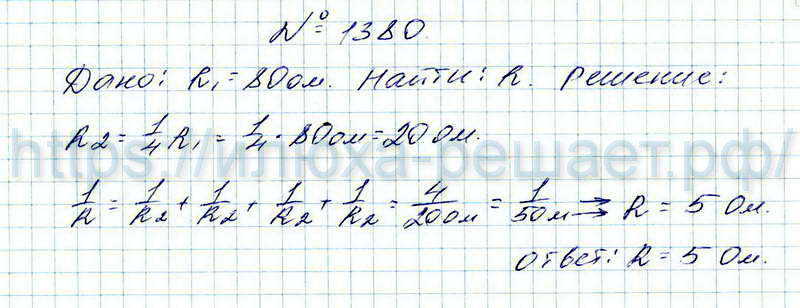 № 1380.
Дано: R₁ = 80 Ом. Найти: R. Решение:
R2 = 1/4 R₁ = 1/4 · 80 Ом = 20 Ом.
https://илюха-решает.рф/
1/R = 1/R2 + 1/R2 + 1/R2 + 1/R2 = 4/20 Ом = 1/5 Ом → R = 5 Ом.
Ответ: R = 5 Ом.